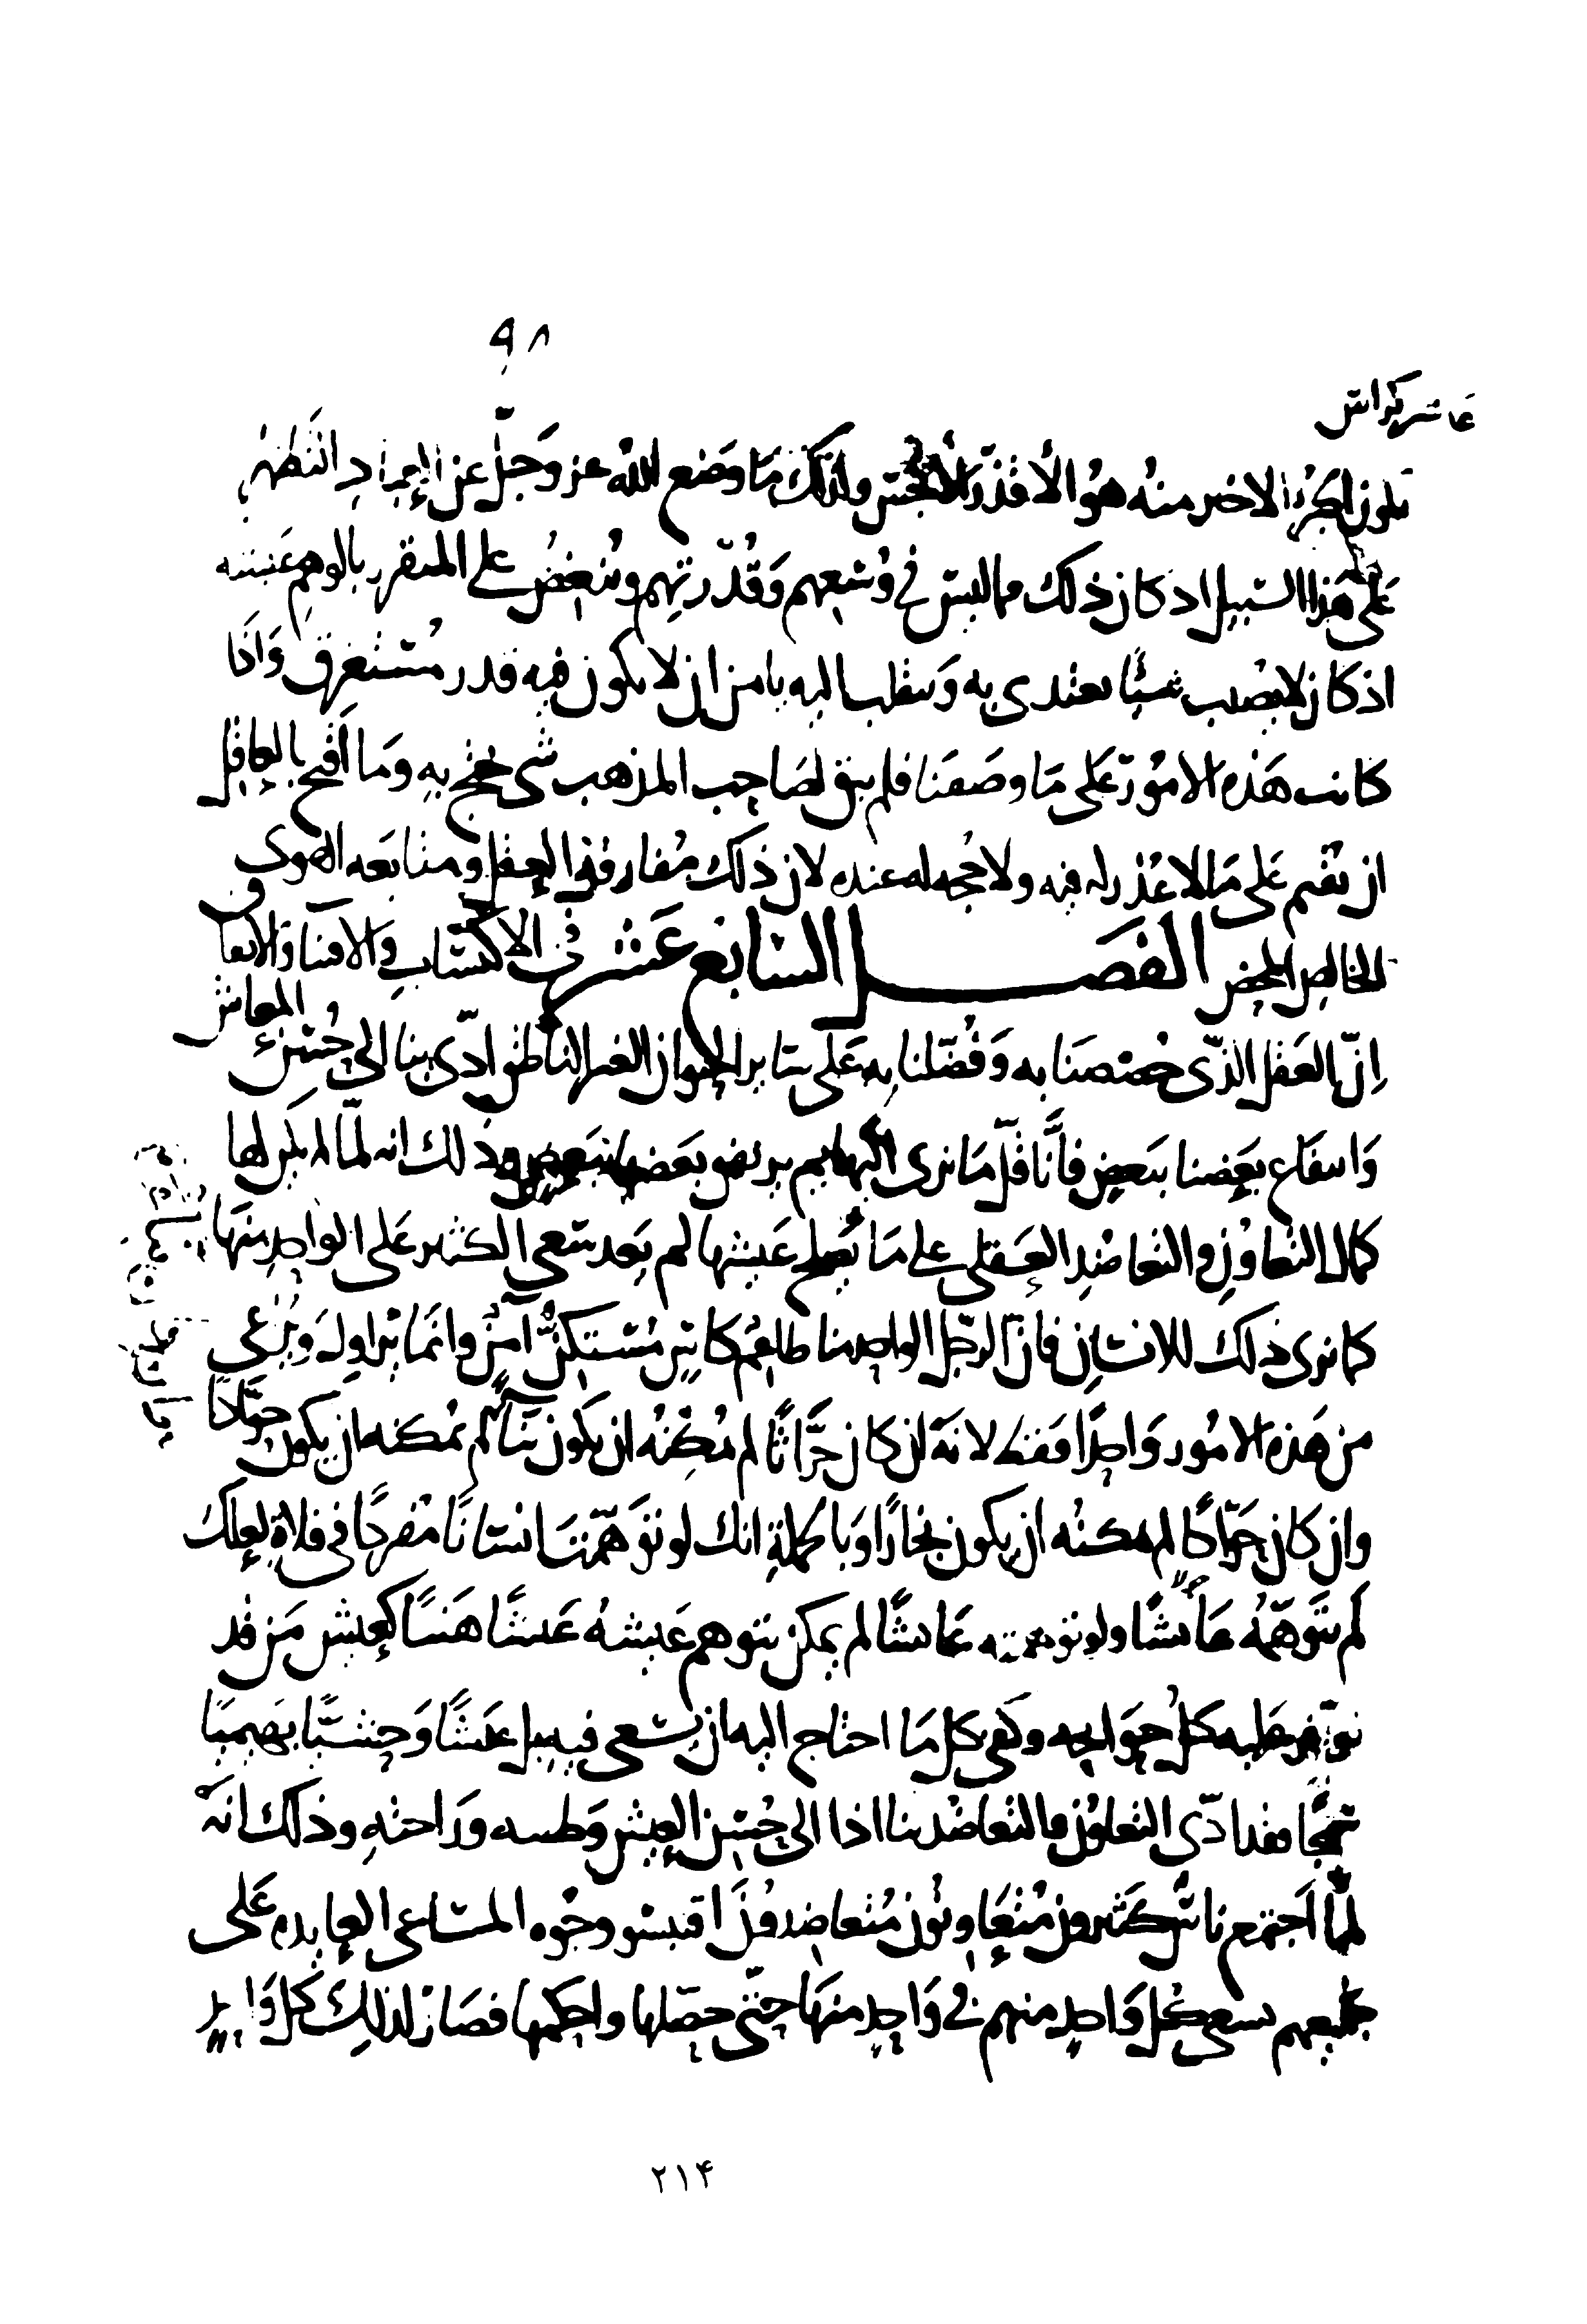 ٩٨
عاشر كراس
يكون الجزء الاخير منه هو الأقذر الأنجس ولذلك ما وضع الله عز وجلّ عن العباد التطهر
على هذا السبيل اذ كان ذلك مما ليس في وسعهم وقُدّرتهم وتنغض على المتقزر بالوهم عيشه
اذ كان لا يصيب شيئًا يغتدى به وينقلب اليه يامن ان لا يكون فيه قدر مستغرق وَاذَا
كانت هذه الامور على ما وصفنا فلم يبق لصاحب المذهب شى يحتج به وما اقبح بالعاقل
ان يقيم على ما لا عذر له فيه ولا حجه له عنده لان ذلك مفارقة العقل ومتابعه الهوى
الخالص المحض الفصل السابع عشر في الاكتساب والاقتنا والانفا ق
و المعاش
إنّ العقل الذّى خصصنا به وَفُضّلنا به على ساير الحيوان الغير الناطق ادّى بنا الى حُسن
وَانتفاع بعضنا ببعض فأنّا قلّ ما نرى البهايم يرتفق بعضها ببعض وذلك انه لمّا لم يكن لها
كمال التعاوُن والتعاضُد العقلى على ما يُصلح عيشها لم يعد سعى الكثير على الواحد منها
كما نرى ذلك للانسان فان الرّجل الواحد منا طاعم كاسٍ مستكنٌ آمنٌ وانما يزاول
من هذه الامور وَاحدًا فقط لانه ان كان حرّاثًا لم يمكنه ان يكون بنّاء لم يمكنه ان يكون حوّاكًا
وان كان حوّاكًا لم يمكنه ان يكون نجارًا وَبالجملة انك لو توهّمت انسانًا مفردًا في فلاة لعلك
لم تتوهّمه عائشًا ولو توهمته عائشًا لم يمكن تتوهم عيشه عيشًا هنيئًا كعيش من قد
توفر عليه كل حوايجه وكفى كل ما احتاج اليه ان يسعى فيه بل عيشًا وحشيًّا بهيميًا
سمجًا فقد ادّى التعاون والتعاضد بنا اذا الى حُسن العيش وَطيبه وَراحته وذلك انه
لمّا اجتمع ناسٌ كثيرون مُتعاونون مُتعاضدون اقتسمو وجوه المساعى العايده على
جميعهم سعى كل وَاحد منهم في وَاحد منها حتى حصّلها واحكمها فصار لذلك كل وَاحد
٢١۴